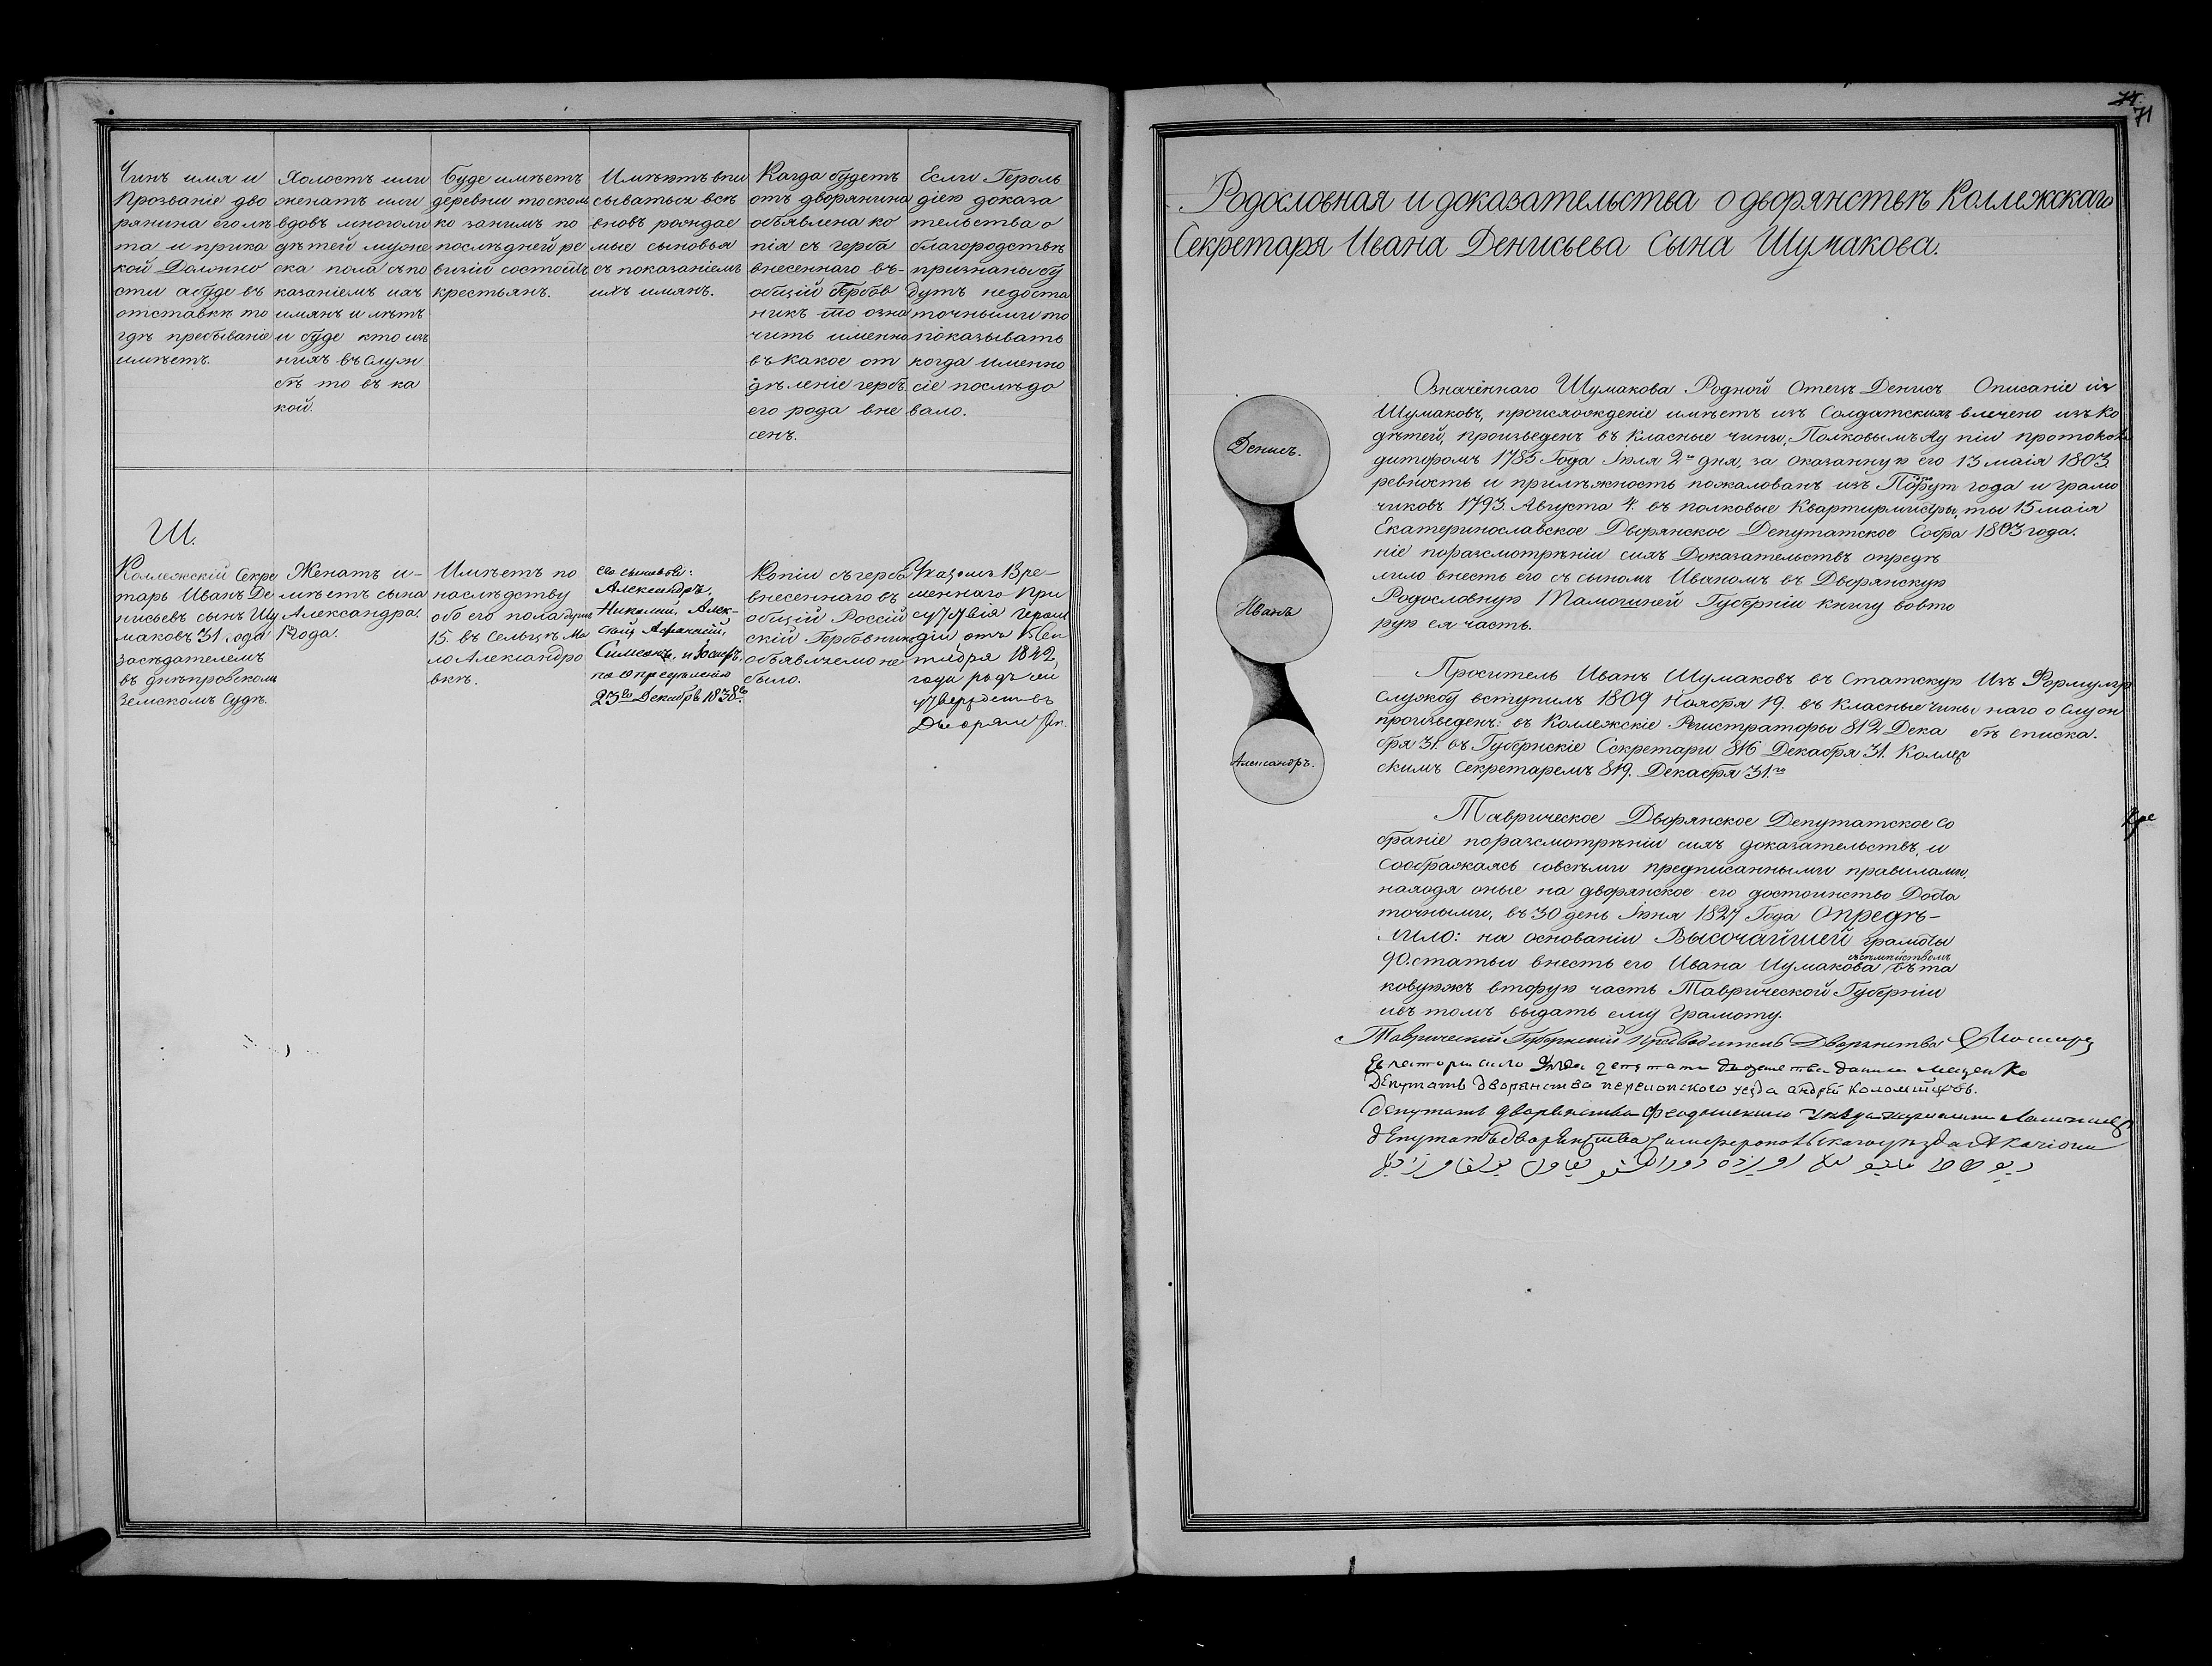 Чинъ имя и
Прозваніе дво
рянина его лѣ
та и при ка
кой Должно
сти а буде въ
отставкѣ то
гдѣ пребываніе
имѣетъ.
Холостъ или
женатъ или
вдовъ многоли
дѣтей муже
ска пола съ по
казаніемъ ихъ
имянъ и лѣтъ
и буде кто изъ
нихъ въ Служ
бѣ то въ ка
кой.
Буде имѣетъ
деревни то сколь
ко за нимъ по
послѣдней ре
визіи состоитъ
крестьянъ.
Имѣютъ впи
сываться всѣ
вновь раждае
мые сыновья
съ показаніемъ
ихъ имянъ.
Когда будетъ
отъ дворянина
объявлена ко
пія съ герба
внесеннаго въ-
общій Гербов
никъ то озна
чить именно
въ какое от
дѣленіе гербъ
его рода вне
сенъ.
Если Героль
діею доказа
тельства о
благородствѣ
признаны бу
дутъ недоста
точными то
показывать
когда именно
сіе послѣдо
вало.
Ш.
Коллежскій Секре
тарь Иванъ Де
нисьевъ сынъ Шу
маковъ 31 года
Засѣдателемъ
въ днѣпровскомъ
Земскомъ Судѣ.
Женатъ и-
мѣетъ сына
Александра
1 года.
Имѣетъ по
наслѣдству
обоего пола душъ
15. въ Сельцѣ Ма
ло Александро
вкѣ.
сыновья:
Александръ,
Николай, Алек-
сѣй, Афанасій,
Симеонъ, и Іосифъ,
по опредѣленію
23го Декабря 1838го.
Копіи съ герба
внесеннаго въ
общій Россій
скій Гербовникъ
объявляемо не
было.
Указомъ Вре-
меннаго При
сутствія Герол
діи отъ 15 Сен
тября 1842
года родъ сей
утвержденъ въ
Дворянст.
71
Родословная и доказательства о дворянствѣ Коллежскаго
Секретаря Ивана Денисьева Сына Шумакова.
Денисъ.
Иванъ
Александръ.
Означеннаго Шумакова Родной Отецъ Денисъ
Шумаковъ, происхожденіе имѣетъ изъ Солдатскихъ
дѣтей, произведенъ въ Класные чины, Полковымъ Ау
диторомъ 1785 Года Іюля 2го дня, за оказанную его
ревность и прилѣжность пожалованъ изъ Порут
чиковъ 1793. Августа 4. въ полковые Квартирмистры,
Екатеринославское Дворянское Депутатское Собра
ніе поразсмотрѣніи сихъ Доказательствъ опредѣ
лило внесть его съ сыномъ Иваномъ въ Дворянскую
Родословную Тамошней Губерніи книгу вовто
рую ея часть.
Описаніе из
влечено изъ Ко
піи протокола
13 маія 1803
года и грамо
ты 15 маія
1803 года.
Проситель Иванъ Шумаковъ въ Статскую
Службу вступилъ 1809 Ноября 19. въ Класные чины
произведенъ: въ Коллежскіе Регистраторы 812 Дека
бря 31. въ Губернскіе Секретари 816 Декабря 31. Коллеж
скимъ Секретаремъ 819. Декабря 31.го
Изъ Формуляр
наго о Служ
бѣ списка.
Таврическое Дворянское Депутатское Со
браніе поразсмотрѣніи сихъ доказательствъ, и
Соображаясь совсѣми предписанными правилами,
находя оные на дворянское его достоинство Доста
точными, въ 30 день Іюня 1827 Года Опредѣ-
лило: на основаніи Высочайшей грамоты
90. статьи внесть его Ивана Шумакова съ семействомъ въ та
ковуюжъ вторую часть Таврической Губерніи
ивъ томъ выдать ему Грамоту.
Таврическій Губернскій Предводитель Дворянства
депутатъ дворянства Данила Мищенко
Депутатъ дворянства перекопского уезда андрей Коломийцовъ.
депутатъ дворянства Феодосискаго уезда
депутатъ дворянства Симферопольскаго уезда